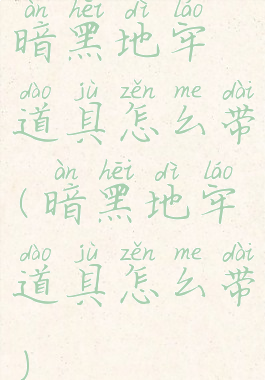 àn hēi dì láo
暗黑地牢
dào jù zěn me dài
道具怎么带
àn hēi dì láo
（暗黑地牢
dào jù zěn me dài
道具怎么带
）